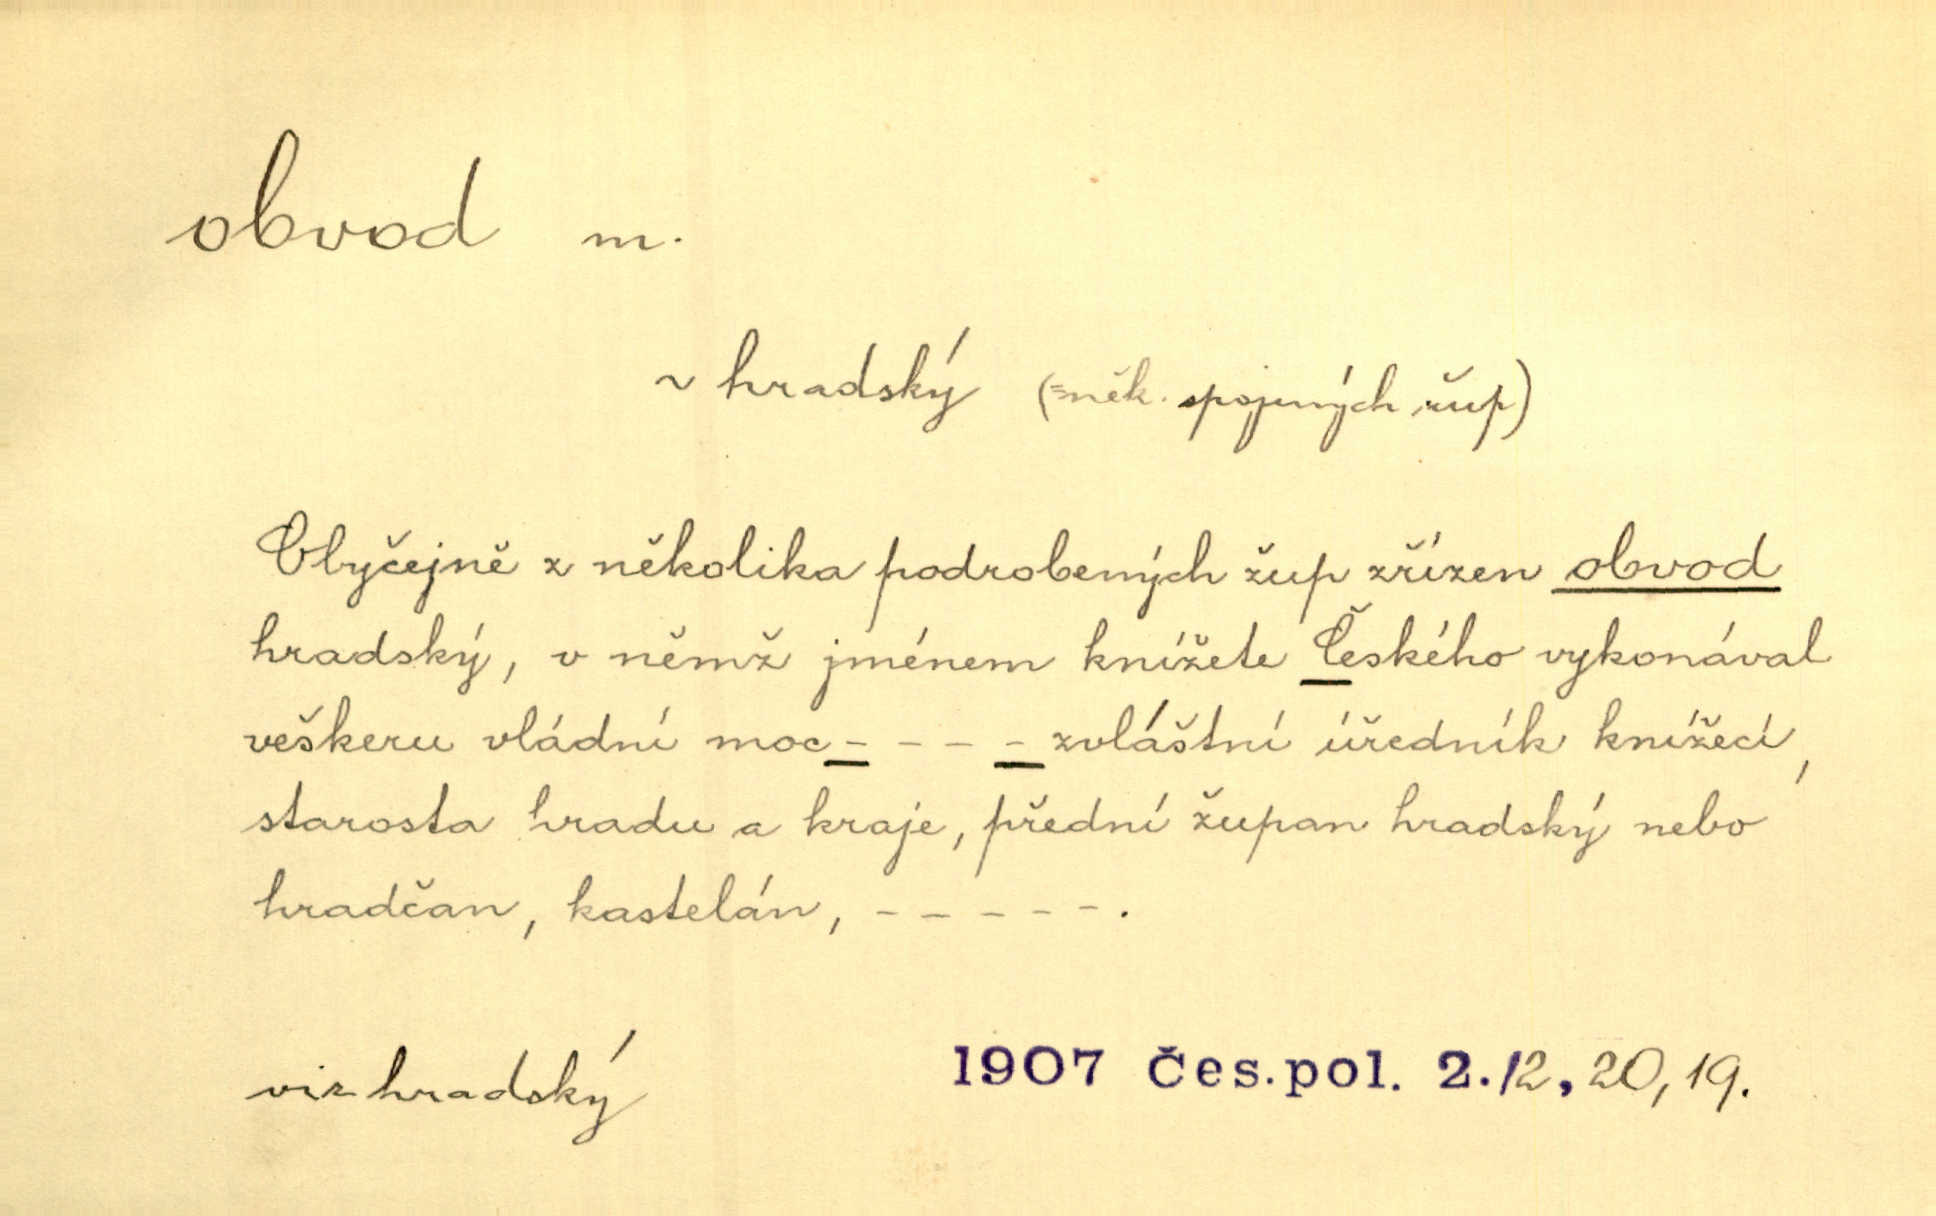 obvod m.
~ hradský (=něk. spojených žup)
Obyčejně z několika podrobených žup zřízen obvod
hradský, v němž jménem knížete Českého vykonával
veškeru vládní moc - - - - zvláštní úředník knížecí,
starosta hradu a kraje, přední župan hradský nebo
hradčan, kastelán, - - - - - .
viz hradský 1907 Čes.pol. 2./2, 20, 19.